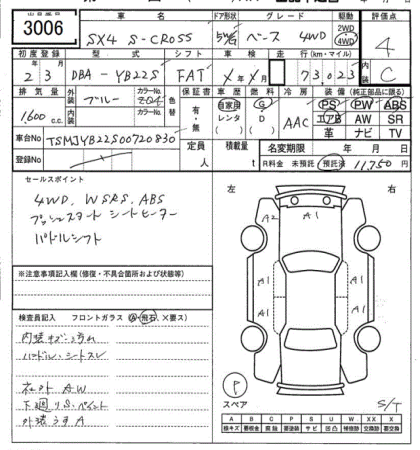 出品番号 車名 ドア形状 グレード 駆動 評価点
3006 SX4 S-CROSS 5W/G ベース 4WD 2WD 4WD 4
初度登録 型式 シフト 車検 走行(km・マイル) 内装
2 3 DBA-YB22S FAT X年X月 73,023 C
排気量 外装 カラーNo. 色替 保証書 車歴 燃料 冷房 装備(純正部品に限る)
1,600 c.c. ブルー ZQ4 有・無 自家用 G AAC PS PW ABS
内装 カラーNo. レンタ D エアB AW SR
車台No TSMJYB22S00720830 ( ) ( ) 革 ナビ TV
定員 人 積載量 t 名変期限 年 月 日
登録No R料金 未預託 預託済 11,750円
セールスポイント
4WD. WSRS. ABS
プッシュスタート シートヒーター
パドルシフト
左 右
A2 A1
A1 A1
A1
※注意事項記入欄(修復・不具合箇所および状態等)
検査員記入 フロントガラス(A・飛石・X要ス)
内装キズ・汚れ
ハンドル・シートスレ
社外AW
下廻りS・ペイント
外装うすA
P
スペア
S/T
A B C P S U W XX X